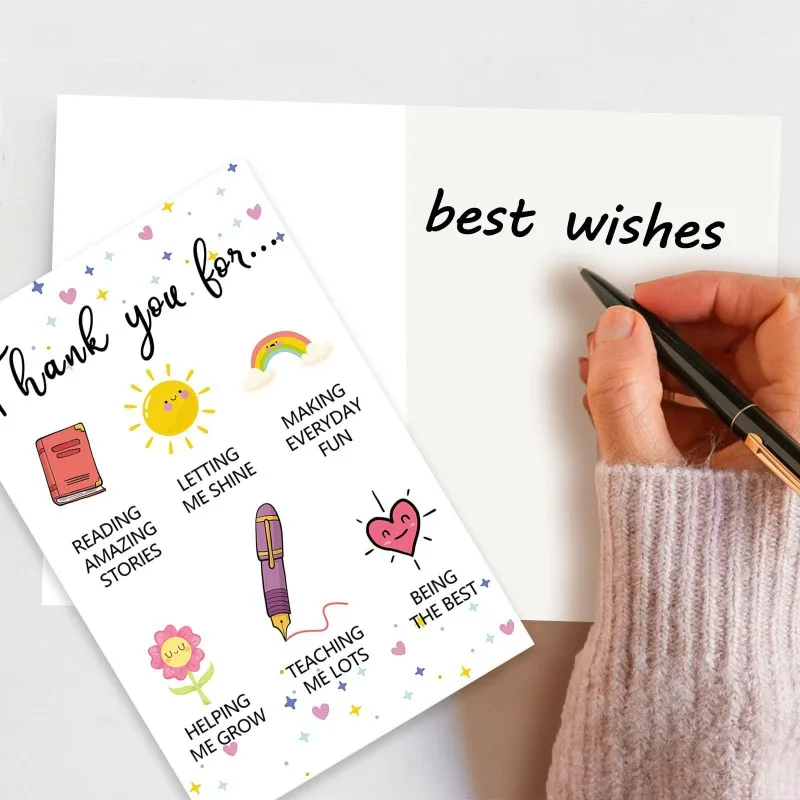 Thank you for...
READING
AMAZING
STORIES
LETTING
ME SHINE
MAKING
EVERYDAY
FUN
HELPING
ME GROW
TEACHING
ME LOTS
BEING
THE BEST
best wishes